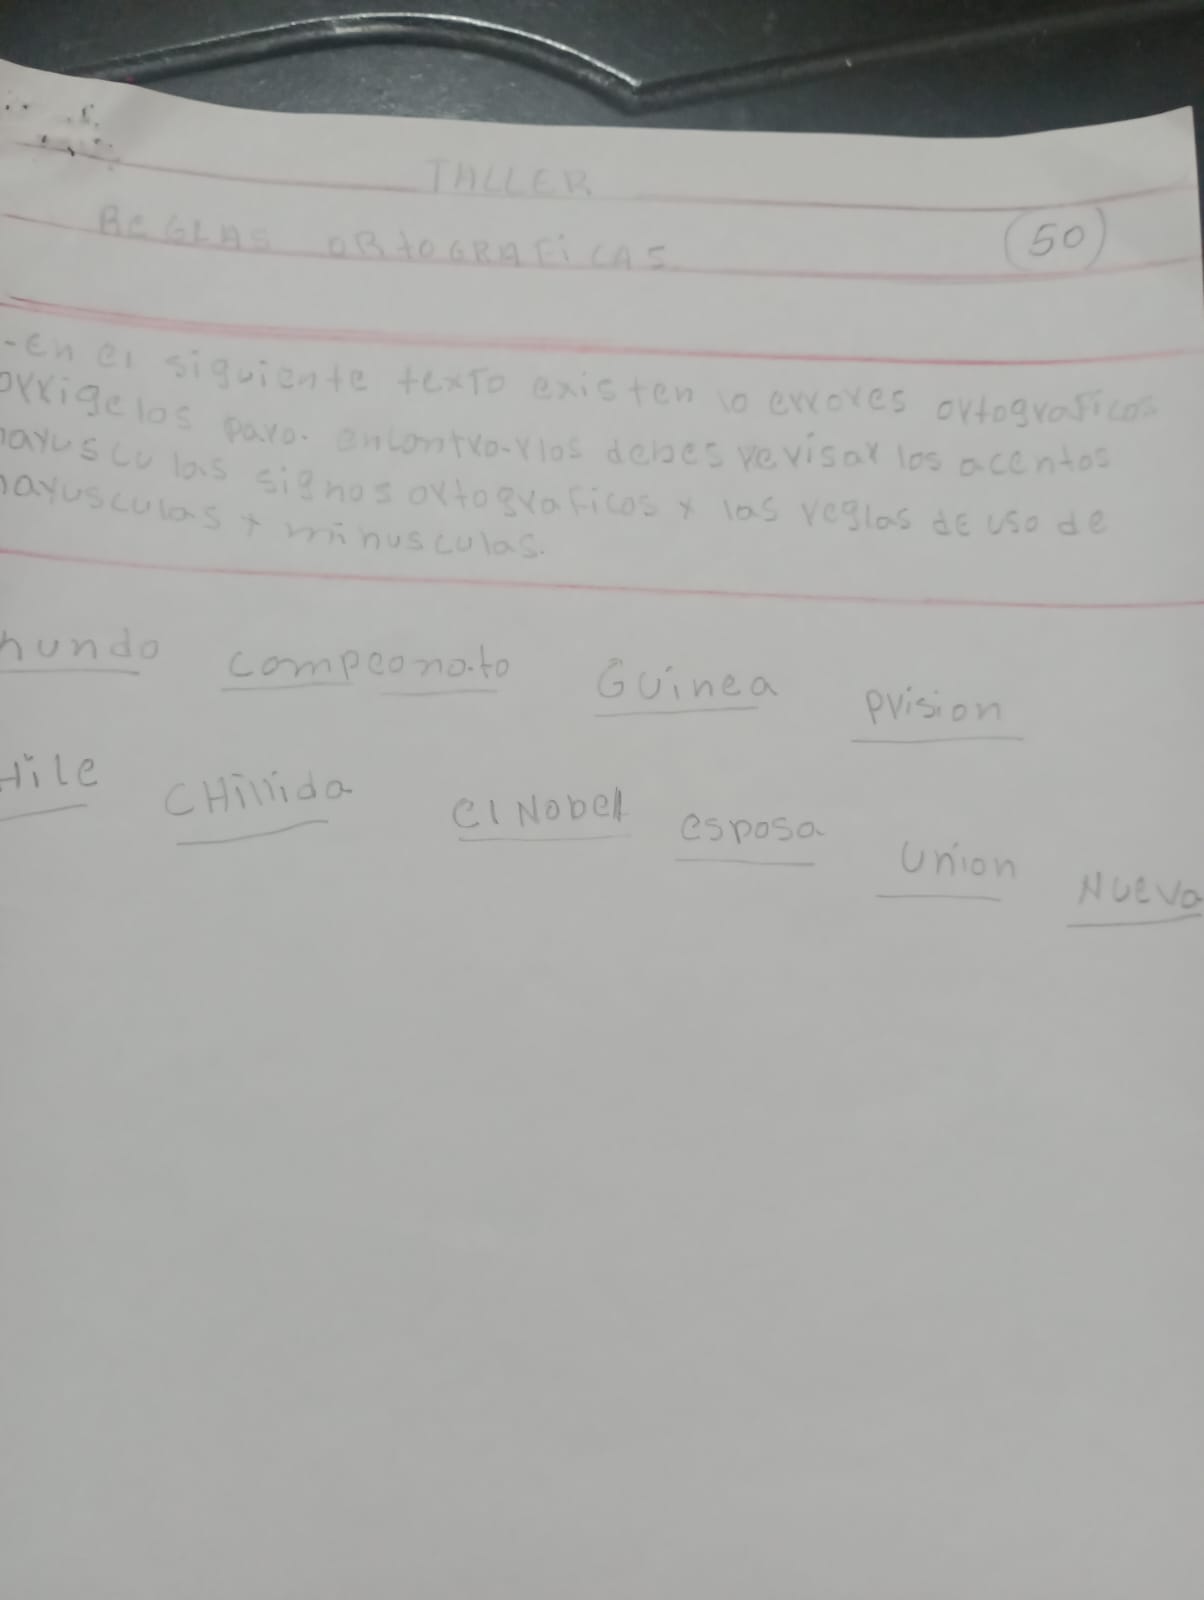 TALLER
REGLAS ORTOGRAFICAS
50
-En el siguiente texto existen 10 errores ortograficos
orrigelos para encontrarlos debes revisar los acentos
ayusculas signos ortograficos y las reglas de uso de
ayusculas y minusculas.
undo campeonato Guinea prision
Hile CHillida el Nobel esposa Union Nueva